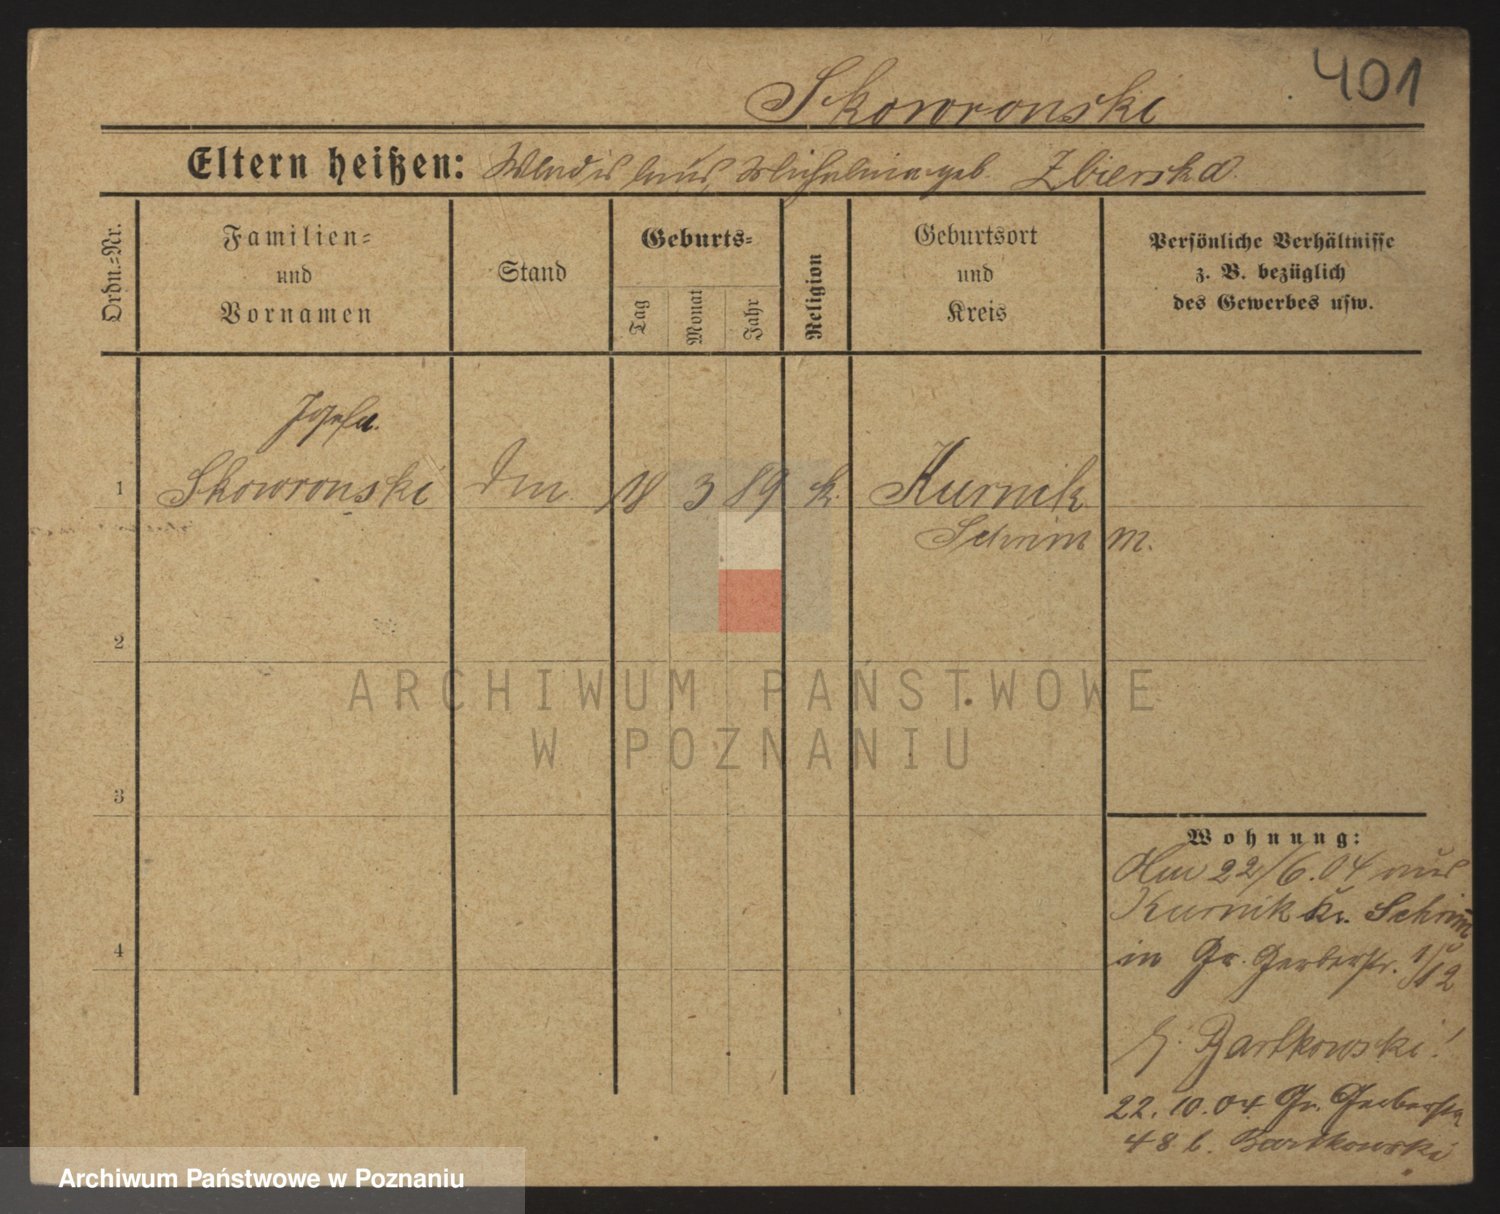 401
Skoworonski
Eltern heißen: Wladislaus, geb. Zbierska.
Ordn.-Nr.
Familien-
und
Vornamen
Stand
Geburts-
Tag
Monat
Jahr
Religion
Geburtsort
und
Kreis
Persönliche Verhältnisse
z. B. bezüglich
des Gewerbes usw.
Josefa.
1 Skoworonski 18 3 89 k. Kurnik
Schrimm.
2
3
4
ARCHIWUM PAŃSTWOWE
W POZNANIU
Wohnung:
22/6.04 aus
Kurnik Kr. Schrim̄
in Gr. Gerberstr.
Bartkowski!
22.10.04 Gr. Gerberstr
48 b. Bartkowski
Archiwum Państwowe w Poznaniu